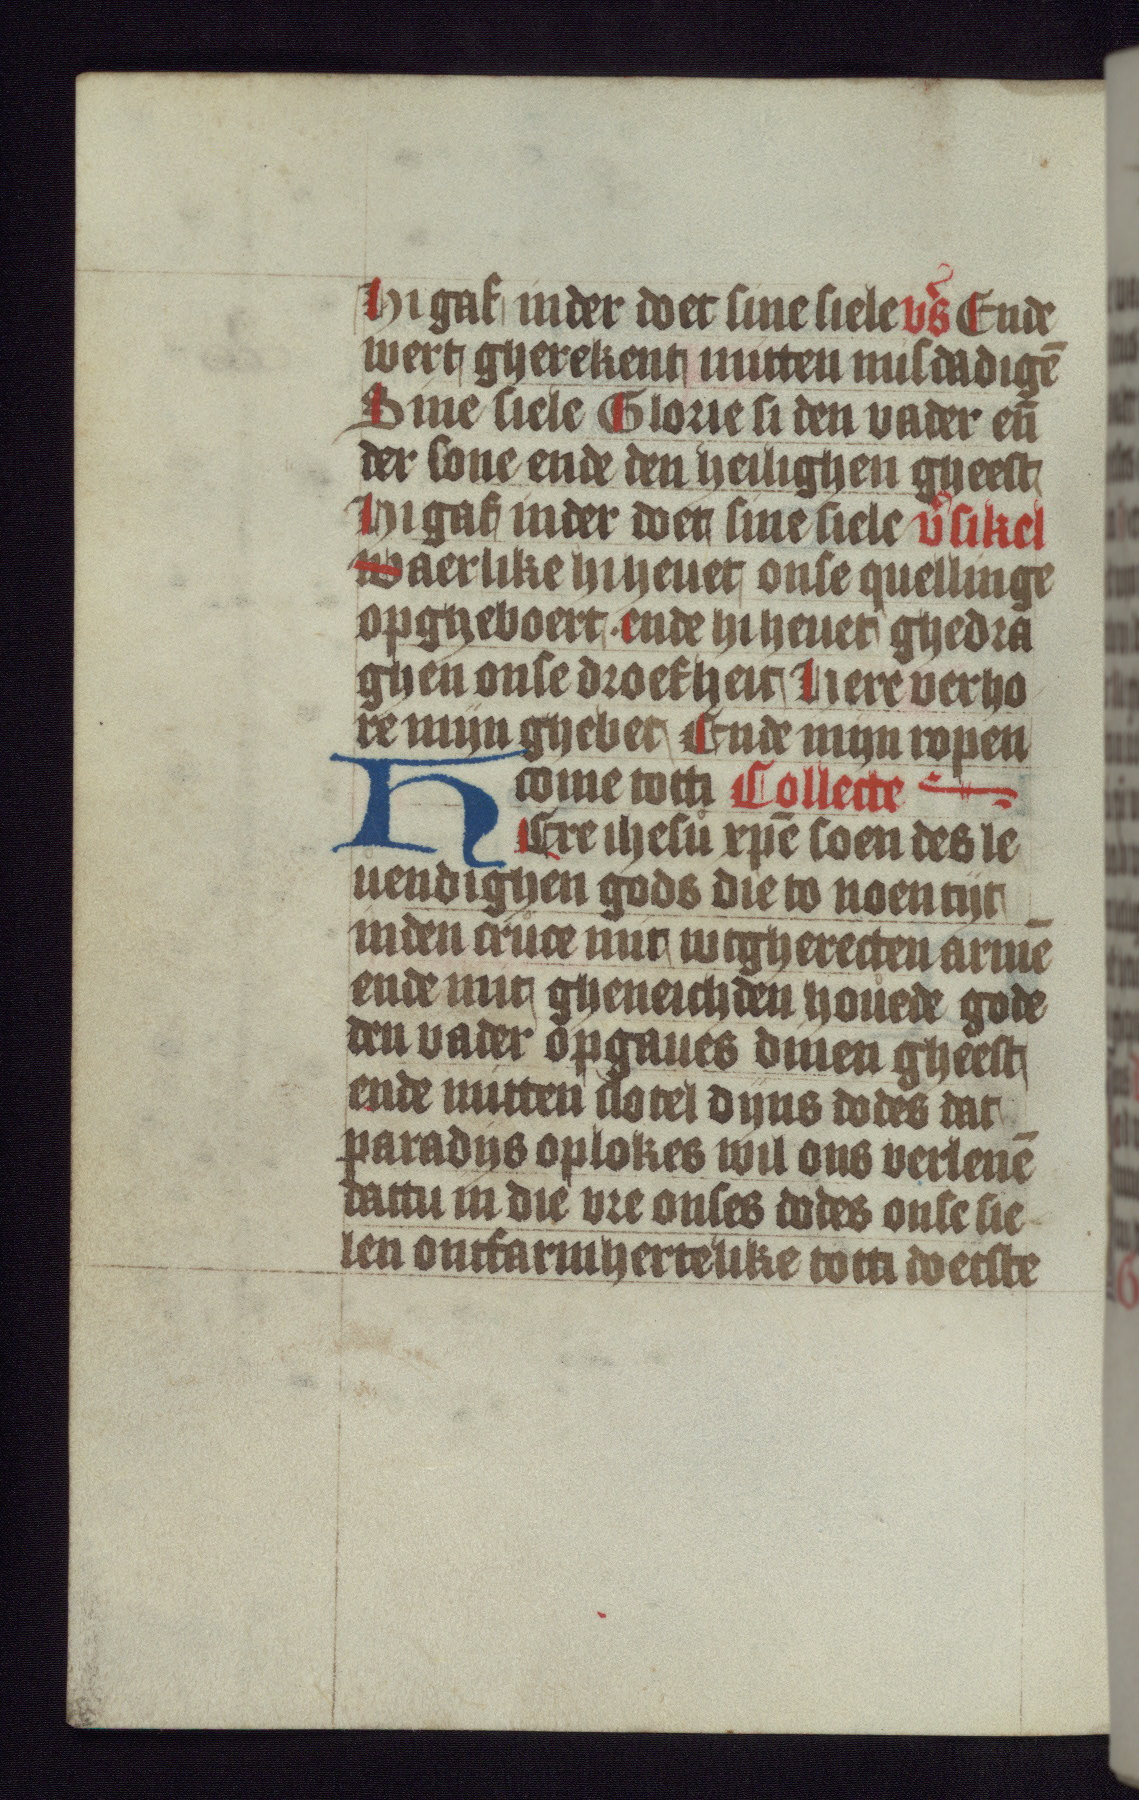 Hi gaf in der doet sine siele vs̃ Ende
wert gherekent mitten misdadigē
Sine siele Glorie si den vader en̄
der sone ende den heilighen gheest
Hi gaf in der doet sine siele v̾sikel
Waerlike hi heuet onse quellinge
opgheboert. ende hi heuet ghedra
ghen onse droefheit Here verho
re mijn ghebet Ende mijn ropen
come totti Collecte
HEre ihesu xpē soen des le
uendighen gods die to noen tijt
inden cruce mit wtgherecten armē
ende mit gheneichden houede gode
den vader opgaues dinen gheest
ende mitten slotel dijns dodes dat
paradijs oplokes wil ons verlenē
dattu in die vre onses dodes onse sie
len ontfarmhertelike totti doetste